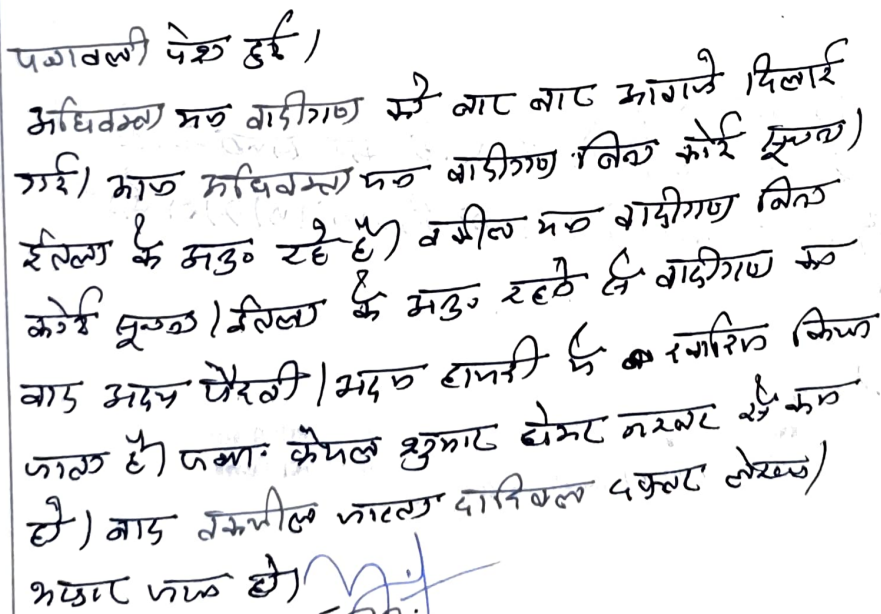 पत्रावली पेश हुई।
अधिवक्ता मन वादीगण को बार बार आवाजे दिलाई
गई। आज अधिवक्ता मन वादीगण बिना कोई सूचना/
ईतला के अनु० रहे है। वकील मन वादीगण बिना
कोई सूचना/ईतला के अनु० रहने से वादीगण का
वाद अदम पैरवी/अदम हाजरी में खारिज किया
जाता है। पत्रा० फैसल शुमार होकर नम्बर से कम
हो। बाद तकमील जाब्ता दाखिल दफ्तर लेख्य/
भण्डार जमा हो।